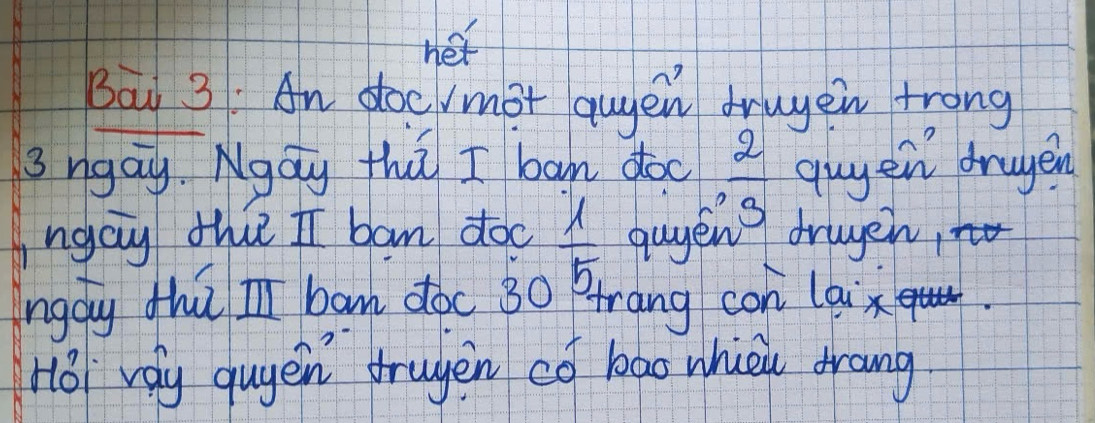 hết
Bài 3: An đọc √ một quyển truyện trong
3 ngày. Ngày thứ I bạn đọc 2/3 quyển truyện
, ngày thứ II bạn đọc 1/5 quyển truyện,
ngày thứ III bạn đọc 30 trang còn lại.
Hỏi vậy quyển truyện có bao nhiêu trang